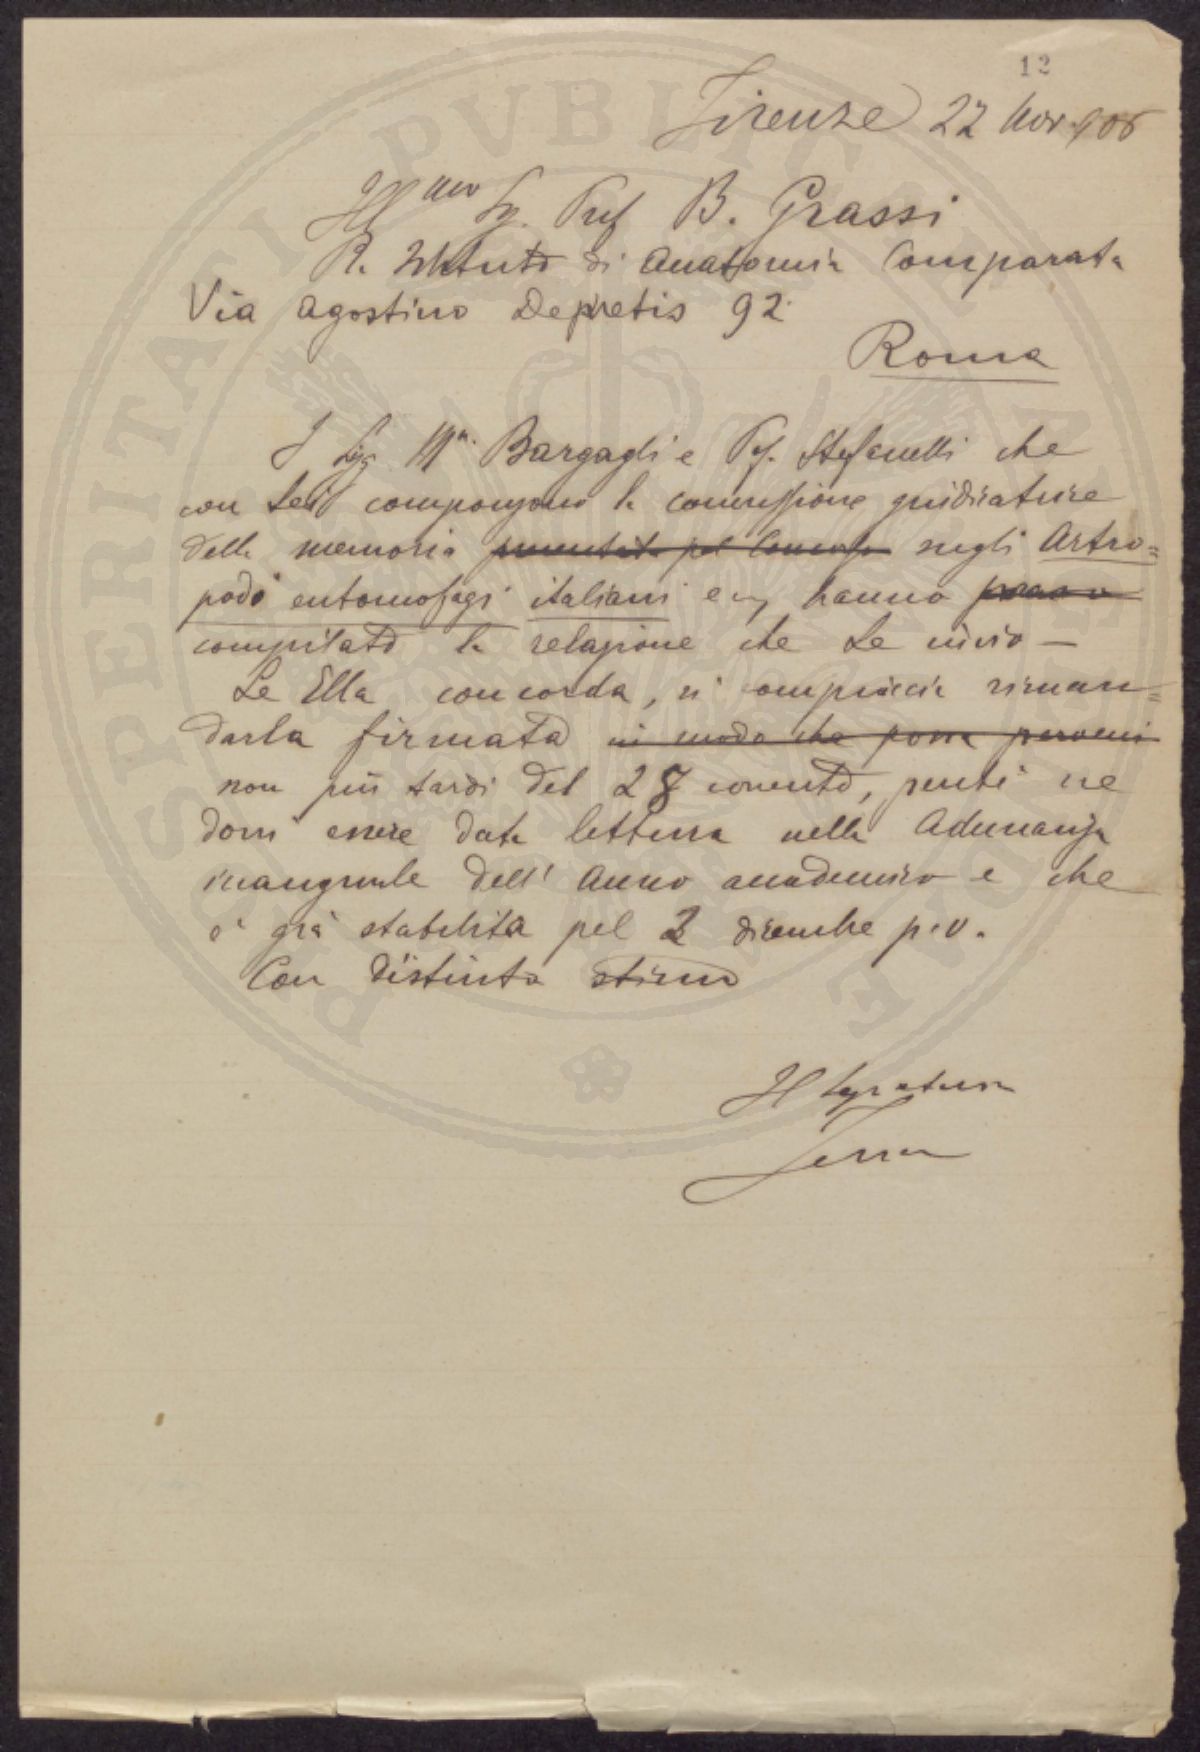 12
Firenze 22 Nov. 906
Ill.mo Sg. Prof B. Grassi
R. Istituto di Anatomia Comparata
Via Agostino Depretis 92
Roma
I Sigg Mr. Bargagli e Prof. Stefanelli che
con Lei compongono la commissione giudicatrice
della memoria presentata pel Concorso sugli Artro=
podi entomofagi italiani hanno
compilato la relazione che Le invio —
Se Ella concorda, si compiaccia riman=
darla firmata in modo che possa perveni
non più tardi del 28 corrente, perché ne
dovrà essere data lettura nella Adunanza
inaugurale dell' Anno accademico e che
è già stabilita pel 2 dicembre p.v.
Con distinta stima
Il Segretario
PROSPERITATI PVBLICAE